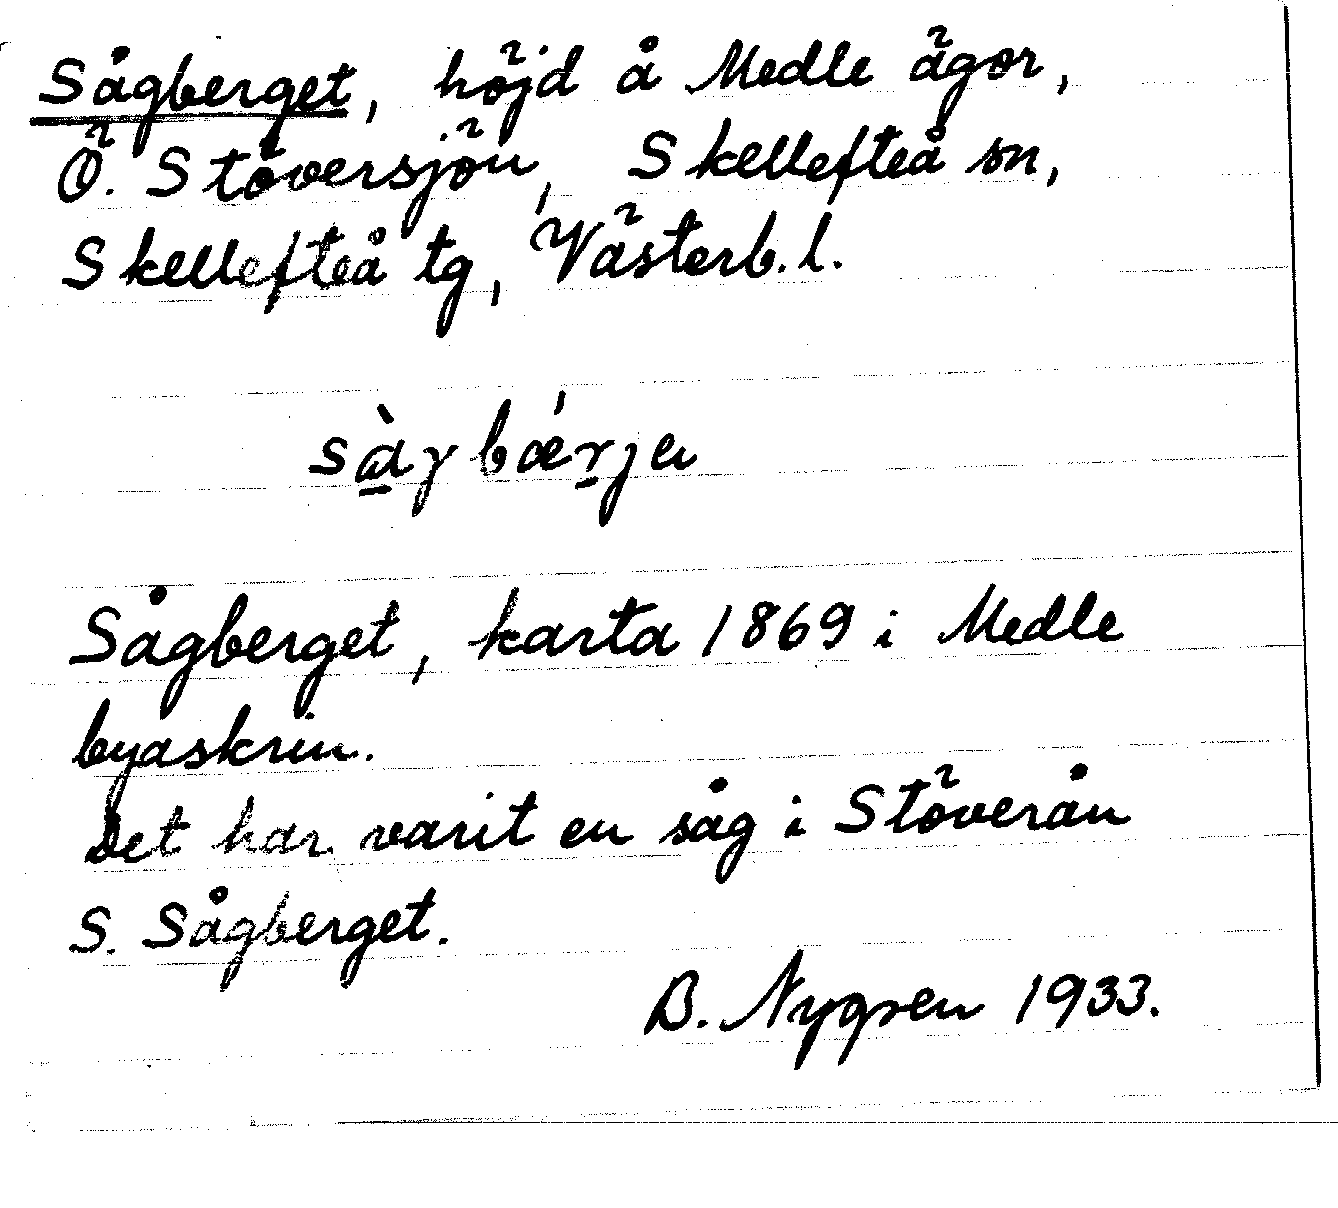 Sågberget, höjd å Medle ägor,
Ö. Stöversjön, Skellefteå sn,
Skellefteå tg, Västerb. l.
sàɣbǽrjen
Sågberget, karta 1869 i Medle
byaskrin.
Det har varit en såg i Stöverån
S. Sågberget.
B. Nygren 1933.